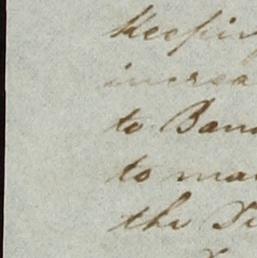 keepin
increa
to Ban
to ma
the